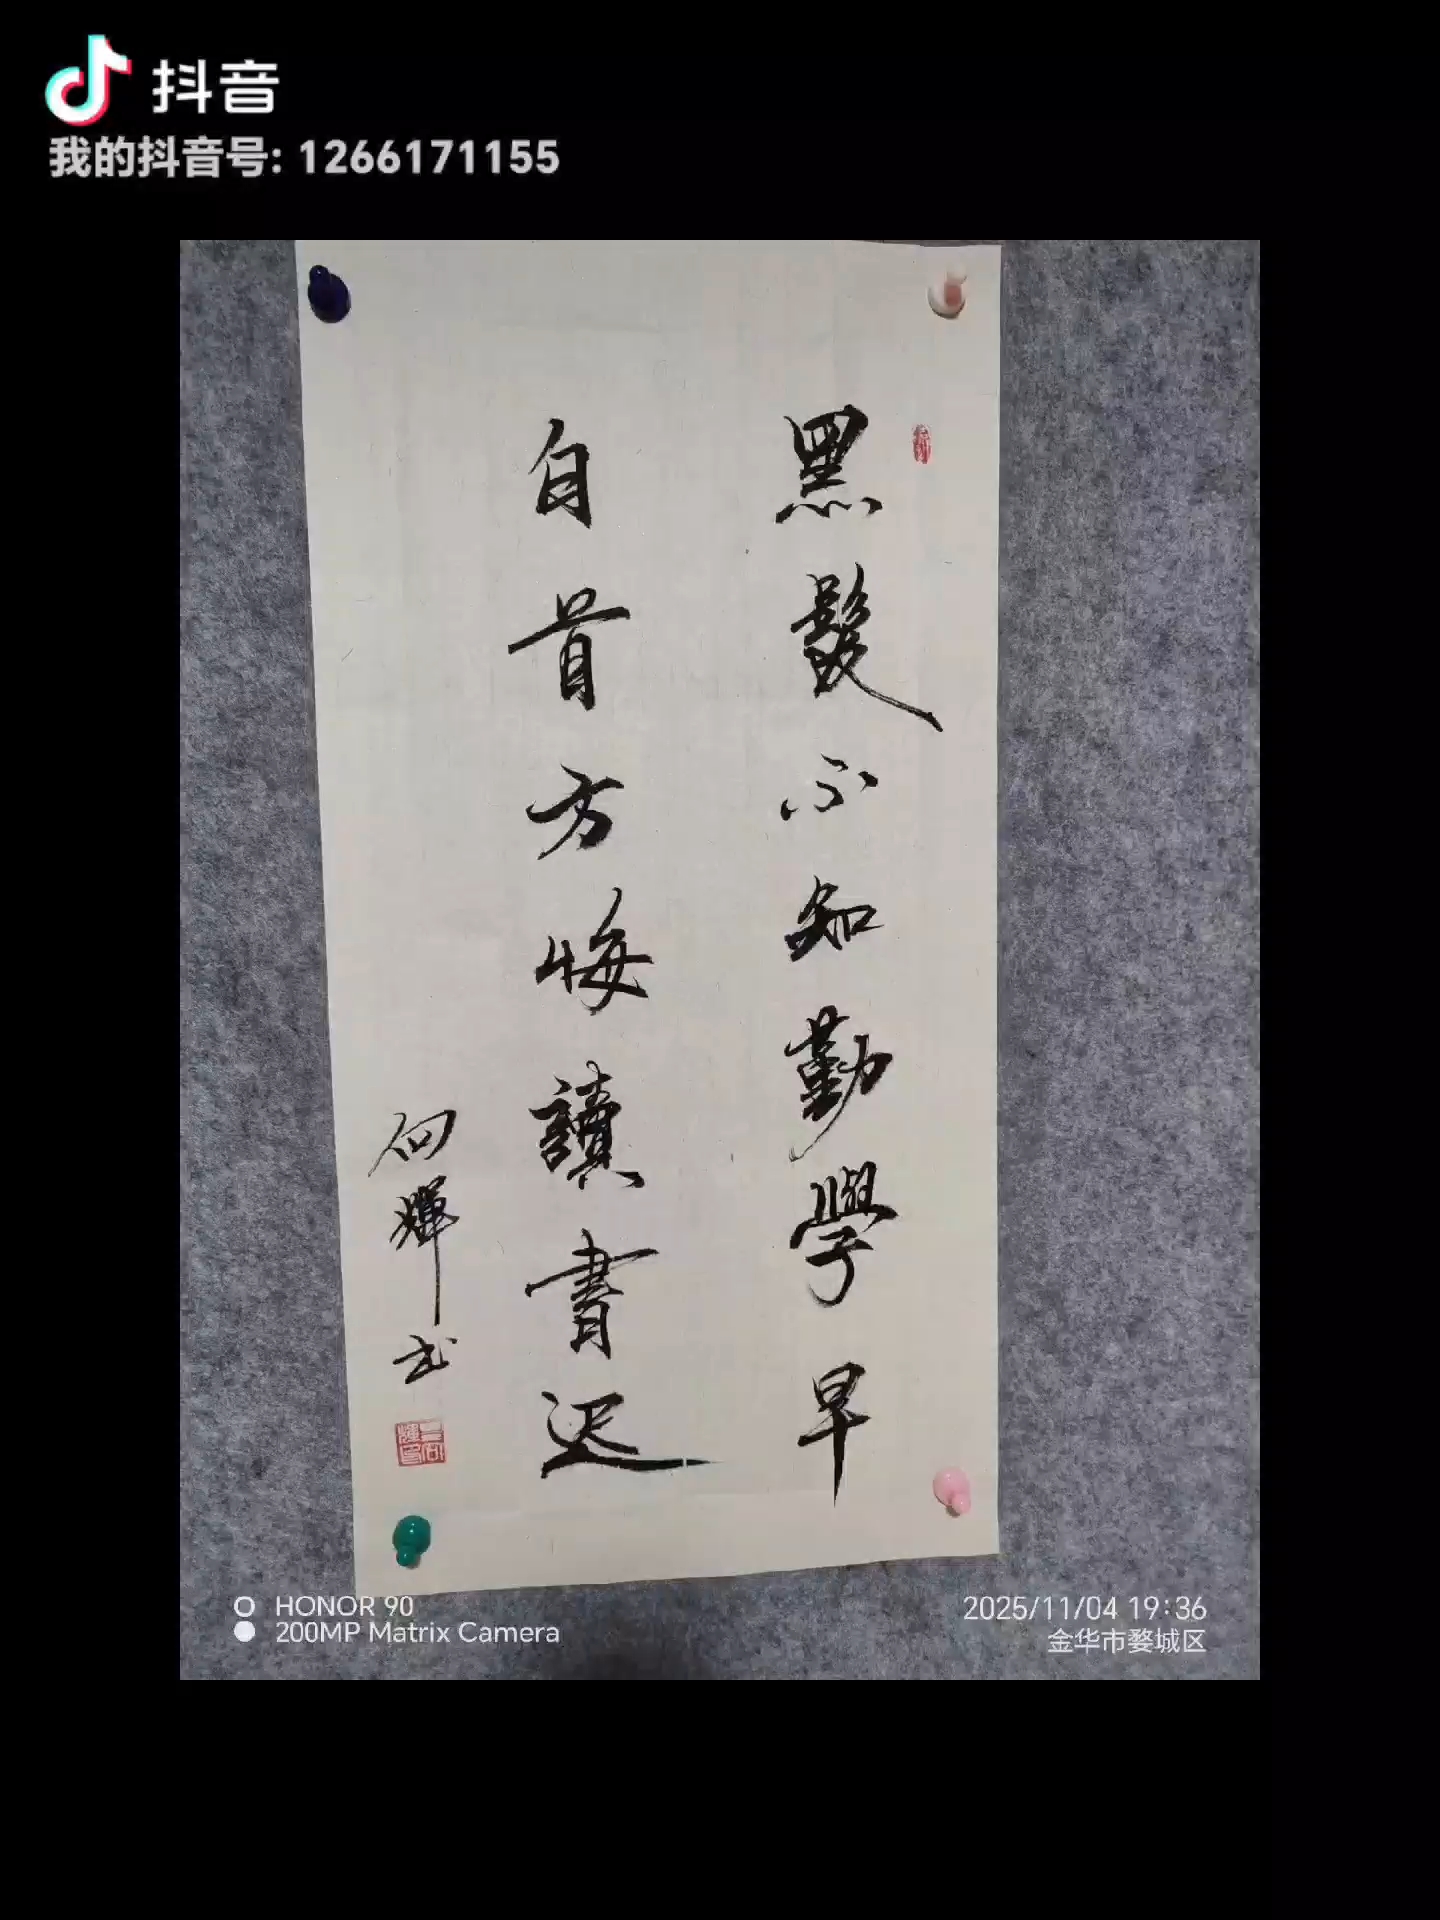 抖音
我的抖音号: 1266171155
黑髮不知勤學早
自首方悔讀書迟
向輝书
HONOR 90
200MP Matrix Camera
2025/11/04 19:36
金华市婺城区